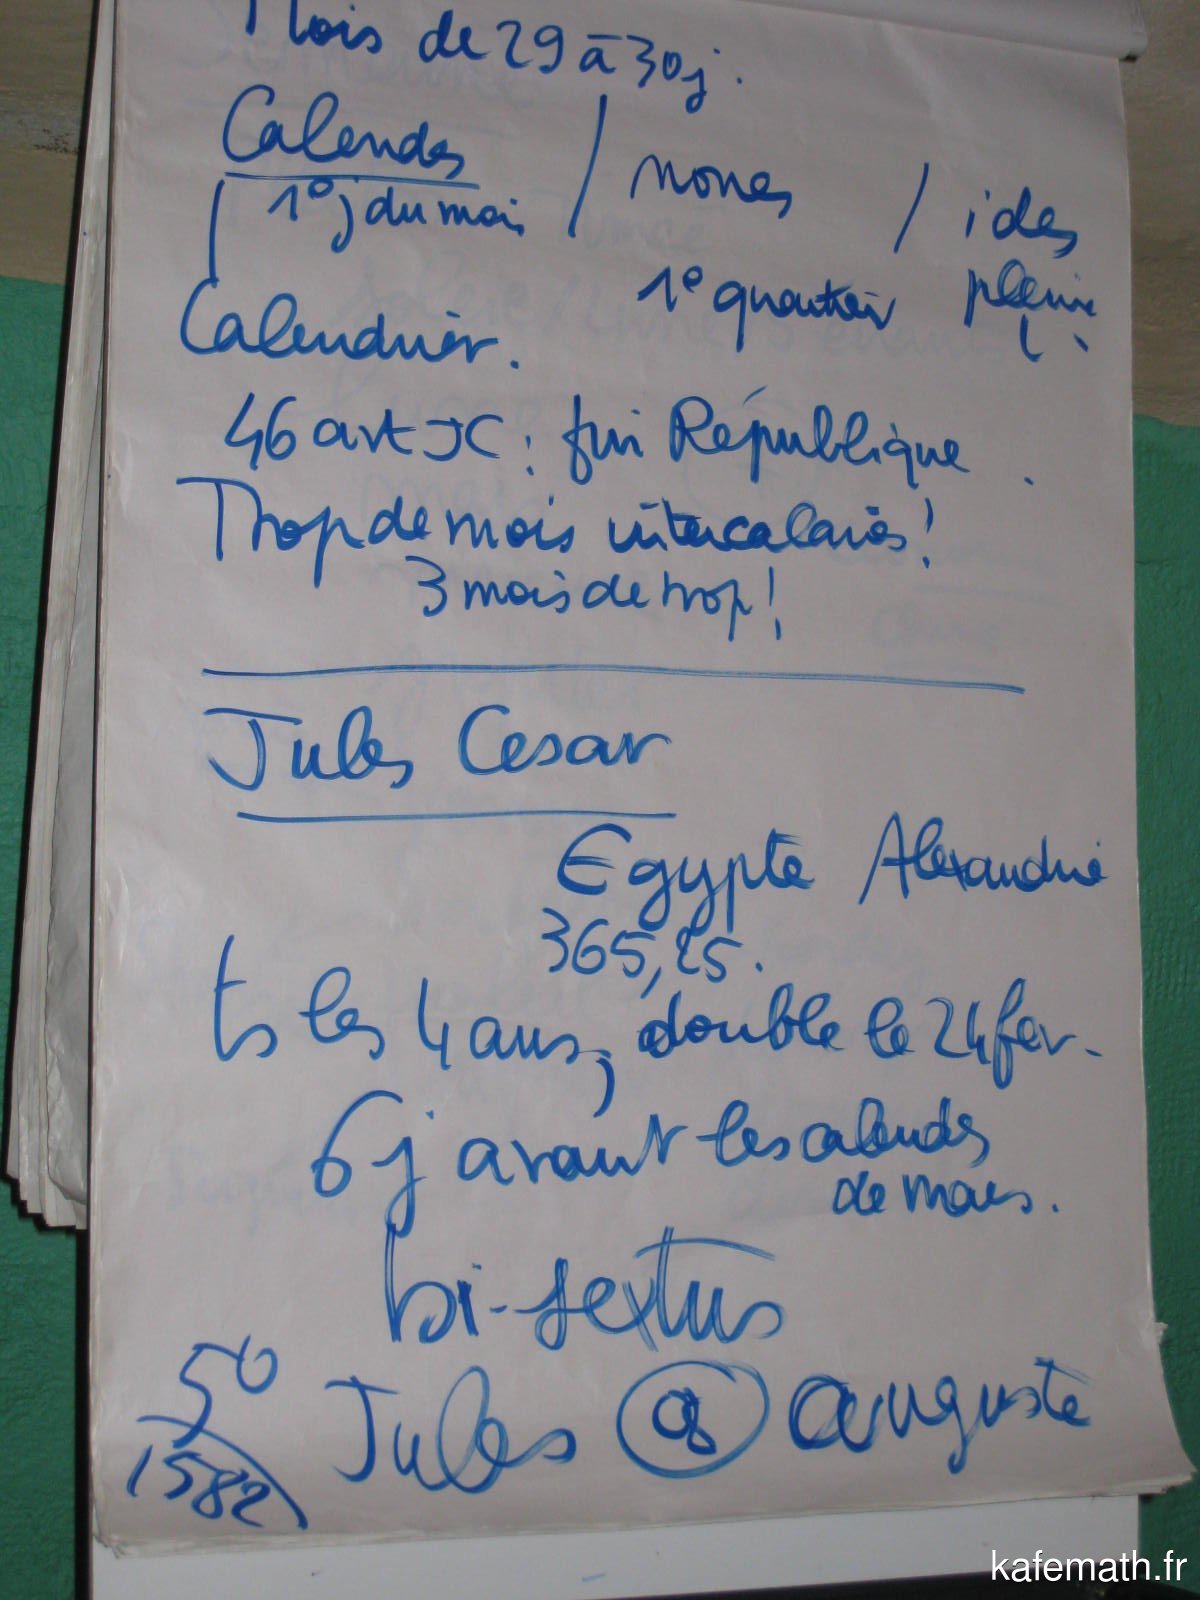 Mois de 29 à 30j.
Calendes / nones / ides
1° j du mois 1° quartier pleine
L.
Calendrier.
46 avt JC : fin République.
Trop de mois intercalaires !
3 mois de trop !
Jules Cesar
Egypte Alexandrie
365,25.
ts les 4 ans, double le 24 fev.
6 j avant les calendes
de mars.
bi-sextus
Jules auguste
50
1582
kafemath.fr